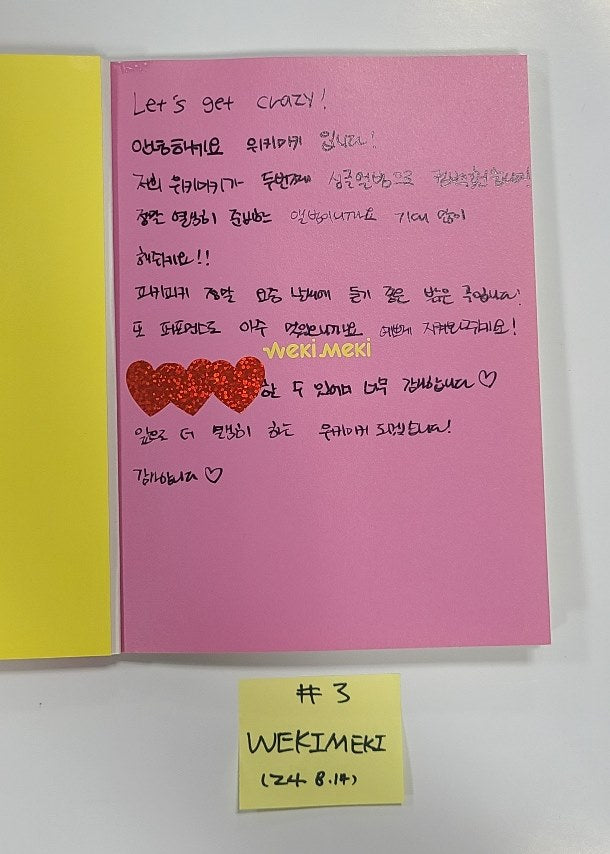 Let's get crazy!
안녕하세요 위키미키 입니다!
저희 위키미키가 두번째 싱글앨범으로 컴백했습니다!
정말 열심히 준비한 앨범이니까요 기대 많이
해주세요!!
피키피키 정말 요즘 날씨에 듣기 좋은 밝은 곡입니다!
또 퍼포먼스도 아주 멋있으니까요 예쁘게 지켜봐주세요!
weki meki
할 수 있어서 너무 감사합니다♡
앞으로 더 열심히 하는 위키미키 되겠습니다!
감사합니다♡
#3
WEKIMEKI
(24.8.14)